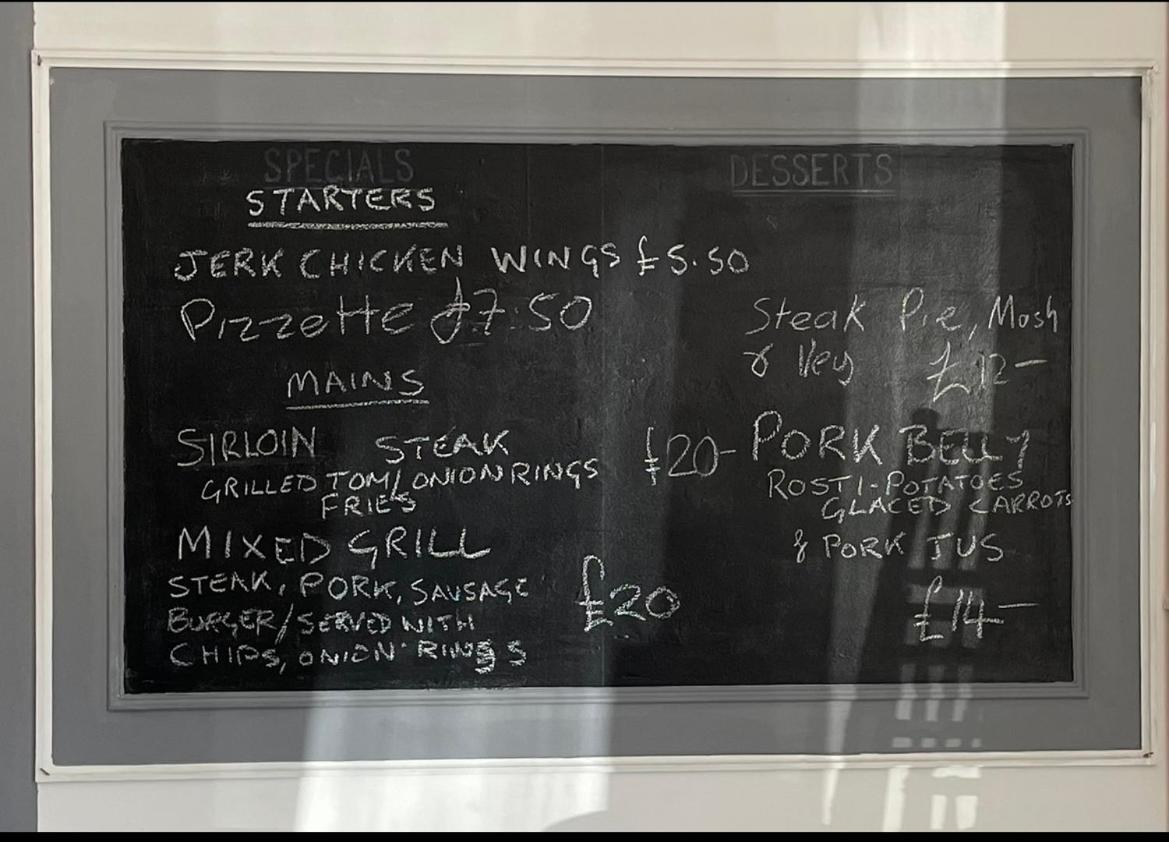 SPECIALS
STARTERS
JERK CHICKEN WINGS £5.50
Pizzette £7.50
MAINS
SIRLOIN STEAK £20-
GRILLED TOM/ONION RINGS
FRIES
MIXED GRILL
STEAK, PORK, SAUSAGE £20
BURGER/SERVED WITH
CHIPS, ONION RINGS
DESSERTS
Steak Pie, Mash
& Veg £12-
PORK BELLY
ROSTI-POTATOES
GLACED CARROTS
& PORK JUS
£14-